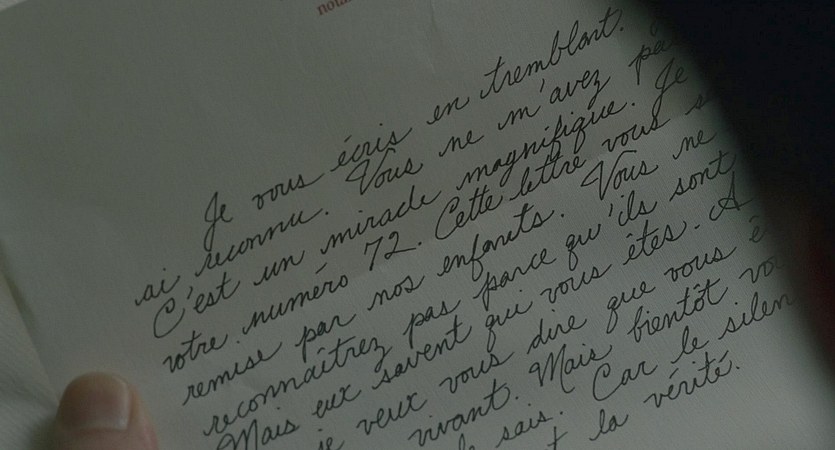 Je vous écris en tremblant.
ai reconnu. Vous ne m'avez pa
C'est un miracle magnifique. Je
votre numéro 72. Cette lettre vous s
remise par nos enfants. Vous ne
reconnaîtrez pas parce qu'ils sont
Mais eux savent qui vous êtes. A
je veux vous dire que vous ê
vivant. Mais bientôt vo
sais. Car le silen
la vérité.